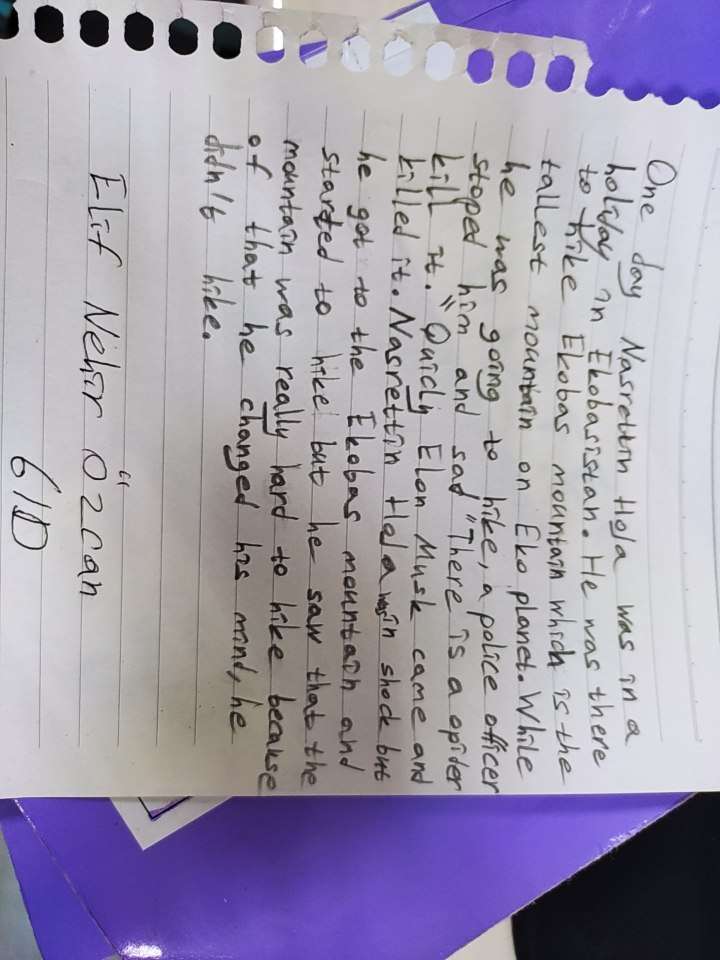 One day Nasrettin Hoja was in a
holiday in Ekobasistan. He was there
to hike Ekobas mountain which is the
tallest mountain on Eko planet. While
he was going to hike, a police officer
stoped him and sad "There is a opider
kill it." Quicly Elon Musk came and
killed it. Nasrettin Hoja was in shock but
he got to the Ekobas mountain and
started to hike but he saw that the
mountain was really hard to hike because
of that he changed his mind, he
didn't hike.
Elif Nehir Özcan
6/D